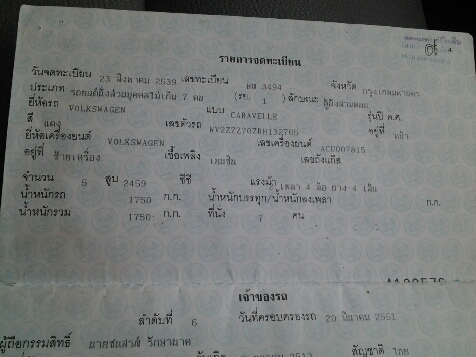 รายการจดทะเบียน
วันจดทะเบียน 23 สิงหาคม 2539 เลขทะเบียน 3494 จังหวัด กรุงเทพมหานคร
ประเภท รถยนต์นั่งส่วนบุคคลไม่เกิน 7 คน (รย. 1 ) ลักษณะ ตู้นั่งสามตอน
ยี่ห้อรถ VOLKSWAGEN แบบ CARAVELLE รุ่นปี ค.ศ.
สี แดง เลขตัวรถ WV2ZZZ70ZRH132765 อยู่ที่ หน้า
ยี่ห้อเครื่องยนต์ VOLKSWAGEN เลขเครื่องยนต์ ACU007815
อยู่ที่ ซ้ายเครื่อง เชื้อเพลิง เบนซิน เลขถังแก๊ส
จำนวน 5 สูบ 2459 ซีซี แรงม้า เพลา 4 ล้อ ยาง 4 เส้น
น้ำหนักรถ 1750 ก.ก. น้ำหนักบรรทุก/น้ำหนักลงเพลา ก.ก.
น้ำหนักรวม 1750 ก.ก. ที่นั่ง 7 คน
เจ้าของรถ
ลำดับที่ 6 วันที่ครอบครองรถ 20 มีนาคม 2551
ผู้ถือกรรมสิทธิ์ รักษานาค สัญชาติ ไทย